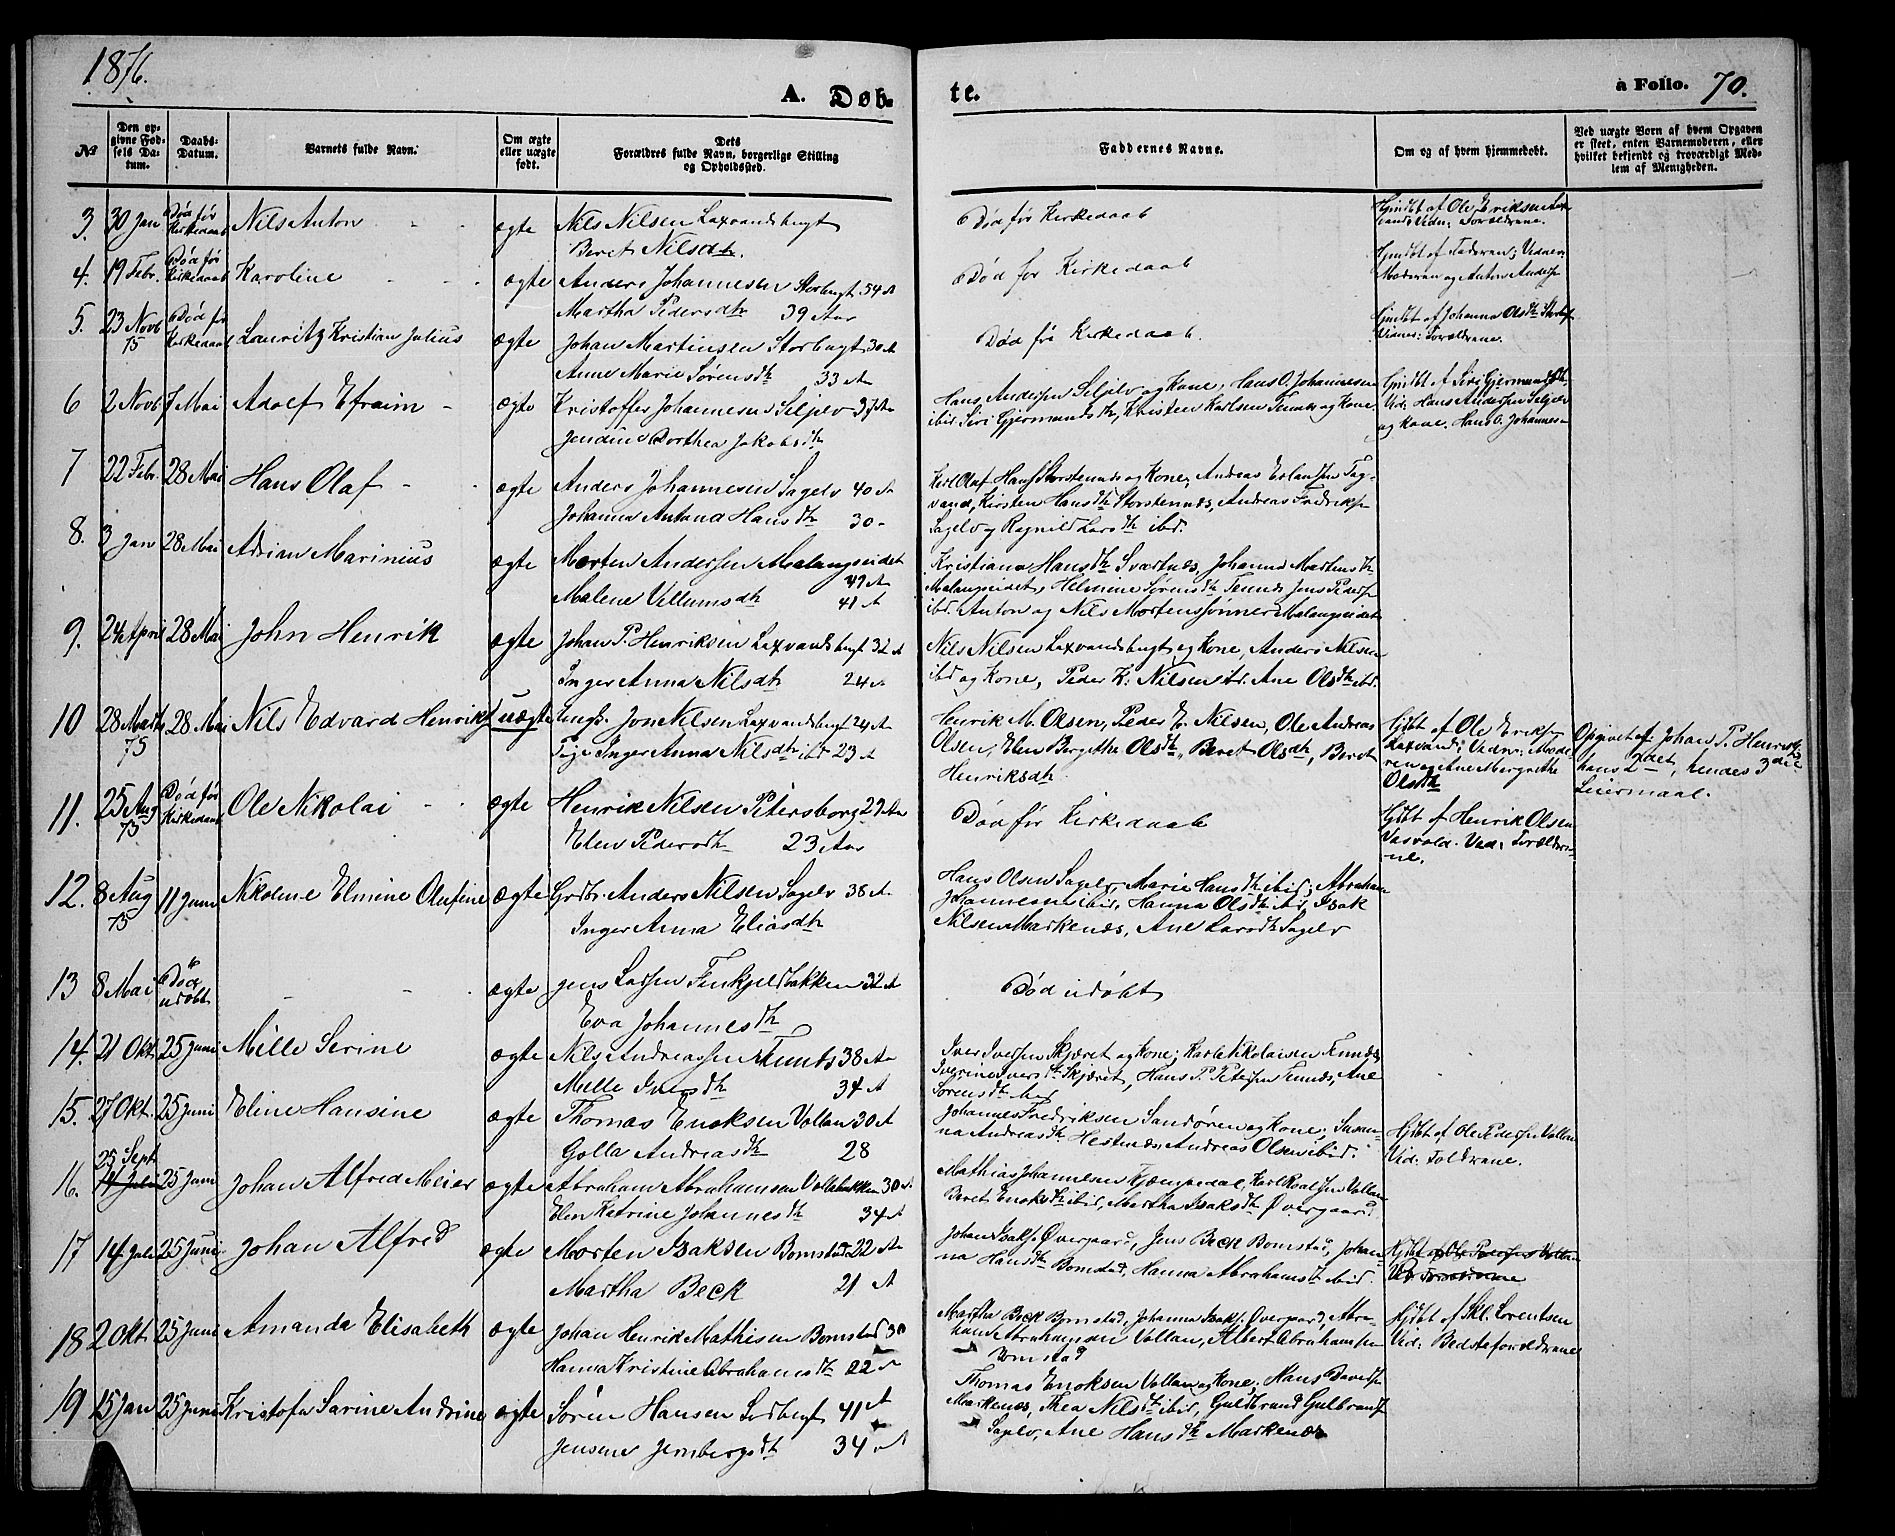 1876.
A. Døb-
te.
à Folio. 70.
№
Den op-
givne Fød-
sels Da-
tum.
Daabs-
Datum.
Barnets fulde Navn.
Om ægte
eller uægte
født.
Dets
Forældres fulde Navn, borgerlige Stilling
og Opholdssted.
Faddernes Navne.
Om og af hvem hjemmedøbt.
Ved uægte Børn af hvem Opgaven
er skeet, enten Barnemoderen, eller
hvilket bekjendt og troværdigt Med-
lem af Menigheden.
3. 30 Jan Død før Kirkedaab Nils Anton ægte Nils Nilsen Laxvandsbugt
Beret Nilsdtr.
Død før Kirkedaab
Hjmdbt af Ole Eriksen Lax-
vand: Vidn: Forældrene.
4. 19 Febr. Død før Kirkedaab Karoline ægte Anders Johannesen Storbugt 54 A
Martha Pedersdtr 39 Aar
Død før Kirkedaab
Hjmdbt af Faderen; Vidner
Moderen og Anton Anders
5. 23 Novb 75 Død før Kirkedaab Lauritz Kristian Julius ægte Johan Martinsen Storbugt 30 A
Anne Marie Sørensdtr 33 A
Død før Kirkedaab.
Hjmdbt af Johanna Olsdtr
Vidner: Forældrene.
6 2 Novb 7 Mai Adolf Efraim ægte Kristoffer Johannesen Seljelv 37 A
Jendine Dorthea Jakobsdtr
Hans Andersen Seljelv og Kone, Hans O. Johannesen
ibid Siri Gjermundsdtr, Kristen Karlsen Tennes og Kone.
Hjmdbt af Siri Gjermundsdtr
Vid: Hans Andersen Seljelv
og Kone. Hans O. Johannesen
7 22 Febr. 28 Mai Hans Olaf ægte Anders Johannesen Sagelv 40 A
Johanna Antona Hansdtr 30
Karl Olaf Hans Storstennes og Kone, Andreas Erlandsen Tag-
vand, Kirsten Hansdtr Storstennes, Andreas Fredriks
Sagelv og Ragnild Larsdtr ibd.
8. 3 Jan 28 Mai Adrian Marinius ægte Morten Andersen Malangseidet
49 A
Malene Villumsdtr 41 A
Kristiana Hansdtr Svartnes, Johanna Martinsdtr
Malangseidet, Helmine Sørensdtr Tennes Jens Peders
ibd. Anton og Nils Mortenssønner Malangseidet
9. 24 April 28 Mai John Henrik ægte Johan P. Henriksen Laxvandsbugt 32 A
Inger Anna Nilsdtr 24 A
Nils Nilsen Laxvandsbugt og Kone, Anders Nilsen
ibd og Kone, Peder K. Nilsen ibd. Ane Olsdtr ibd.
10 28 Marts 75 28 Mai Nils Edvard Henrik uægte Ungk. Jon Nilsen Laxvandsbugt 24 A
Pige Inger Anna Nilsdtr ibd 23 A
Henrik M. Olsen, Peder E. Nilsen, Ole Andreas
Olsen, Elen Bergitha Olsdtr, Beret Olsdtr, Beret
Henriksdtr
Hjdbt af Ole Eriks
Laxvand; Vidn: Mode-
ren og Ane Margrethe
Olsdtr
Opgivet af Johan P. Henriks
hans 2det, hendes 3die
Leiermaal.
11. 25 Aug 75 Død før Kirkedaab Ole Nikolai ægte Henrik Nilsen Petersborg 29 Aar
Elen Pedersdtr 23 Aar
Død før Kirkedaab
Hjdbt af Henrik Olsen
Vasvold. Vid: Forældre-
ne.
12. 8 Aug 75 11 Juni Nikoline Elmine Olufine ægte Grdbr. Anders Nilsen Sagelv 38 A
Inger Anna Eliasdtr
Hans Olsen Sagelv, Marie Hansdtr ibid; Abraham
Johannesen ibid, Hanna Olsdtr ibd, Isak
Nilsen Markenes, Ane Larsdtr Sagelv
13 8 Mai Død udøbt ægte Jens Larsen Finkjeldbakken 32 A
Eva Johannesdtr
Død udøbt
14. 21 Okt. 25 Juni Mille Serine ægte Nils Andreassen Tennes 38 A
Mille Iversdtr 34 A
Iver Iversen Skjæret og Kone; Karl Nikolaisen Tennes,
Iverine Iversdtr Skjæret, Hans P. Petersen Tennes, Ane
Sørensdtr ibd
15. 27 Okt. 25 Juni Eline Hansine ægte Thomas Enoksen Vollan 30 A
Golla Andreasdtr 28
Johannes Fredriksen Sandøren og Kone; Susan-
na Andreasdtr Hestnes, Andreas Olsen ibid.
Hjdbt af Ole Peders Vollan
Vid: Foldrene.
25 Sept
16. 14 Juli 25 Juni Johan Alfred Meier ægte Abraham Abrahamsen Vollabakken 30 A
Elen Katrine Johannesdtr 34 A
Mathias Johannesen Kjempedal, Karl Roalsen Vollan
Beret Enoksdtr ibid, Martha Isaksdtr Øvergaard
17 14 Juli 25 Juni Johan Alfred ægte Morten Isaksen Bomstad 22 A
Martha Beck 21 A
Johan Isaks. Øvergaard, Jens Beck Bomstad, Johan-
na Hansdtr Bomstad, Hanna Abrahamsdtr ibid.
Hjdbt af Ole Peders Vollan
Vid Forældrene
18 2 Okt. 25 Juni Amanda Elisabeth ægte Johan Henrik Mathisen Bomstad 30
Hanna Kristine Abrahamsdtr 22 A
Martha Beck Bomstad, Johanna Isaks. Øvergaard, Abra-
ham Abrahamsen Vollan, Albert Abrahamsen
Bomstad
Hjdbt af Skl. Lorentsen
Vid: Bedsteforældrene
19 15 Jan 25 Juni Kristofa Sarine Andrine ægte Søren Hansen Sørbugt 41 A
Jensine Jernbergsdtr 34 A
Thomas Enoksen Vollan og Kone, Hans Davids
Markenes, Thea Nilsdtr ibid, Guldbrand Gulbrands
Sagelv, Ane Hansdtr Markenes